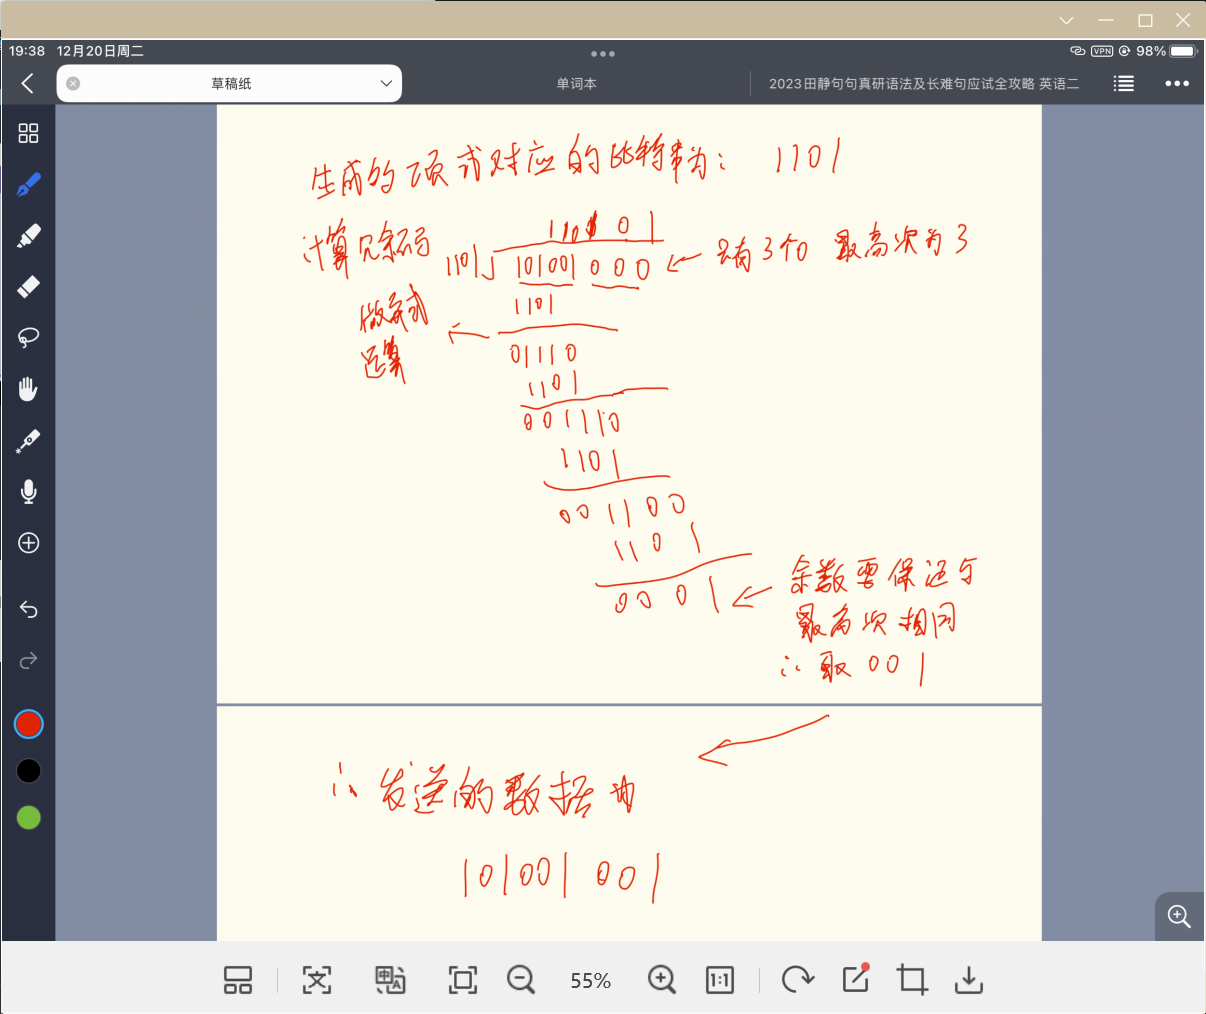 19:38 12月20日周二
VPN 98%
草稿纸
单词本
2023田静句句真研语法及长难句应试全攻略 英语二
生成的项式对应的比特串为: 1101
计算冗余码
1101 01
1101 101001 000 ← 只有3个 最高次为3
1101
做异或运算 ←
01110
1101
001110
1101
001100
1101
0001 ← 余数要保证与
最高次相同
∴取001
∴发送的数据为
101001 001
55%
1:1